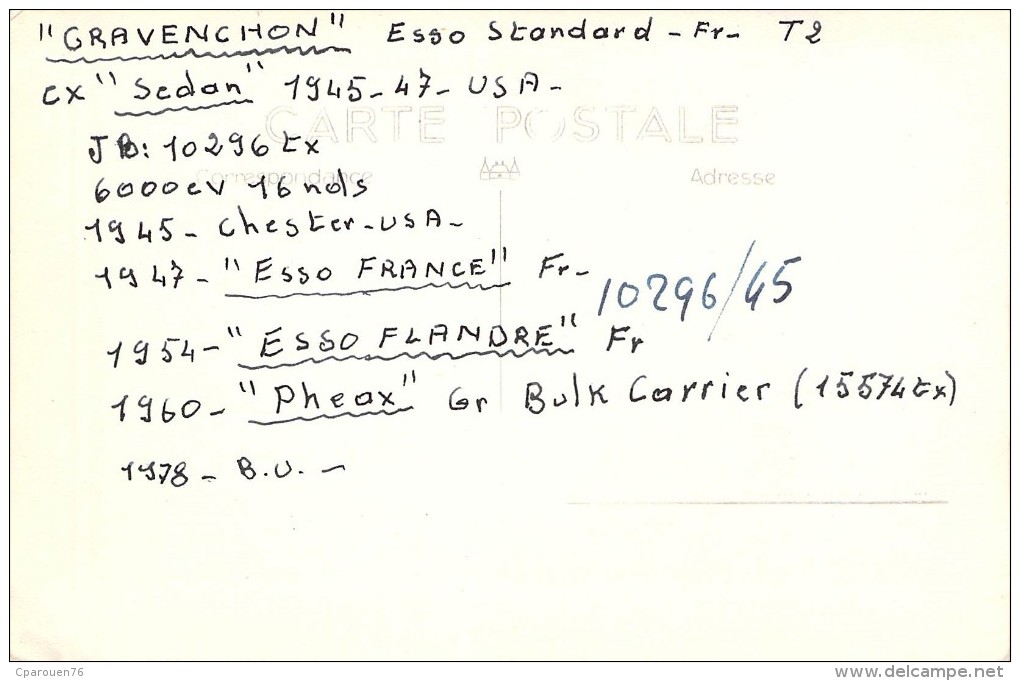 "GRAVENCHON" Esso Standard - Fr - T2
ex "Sedan" 1945-47- USA -
CARTE POSTALE
JB: 10296 tx
Correspondance
Adresse
6000cv 16 nds
1945 - Chester - USA -
1947 - "ESSO FRANCE" Fr -
10296/45
1954 - "ESSO FLANDRE" Fr
1960 - "Pheax" Gr Bulk Carrier (15574tx)
1978 - B.U. -
Cparouen76
www.delcampe.net